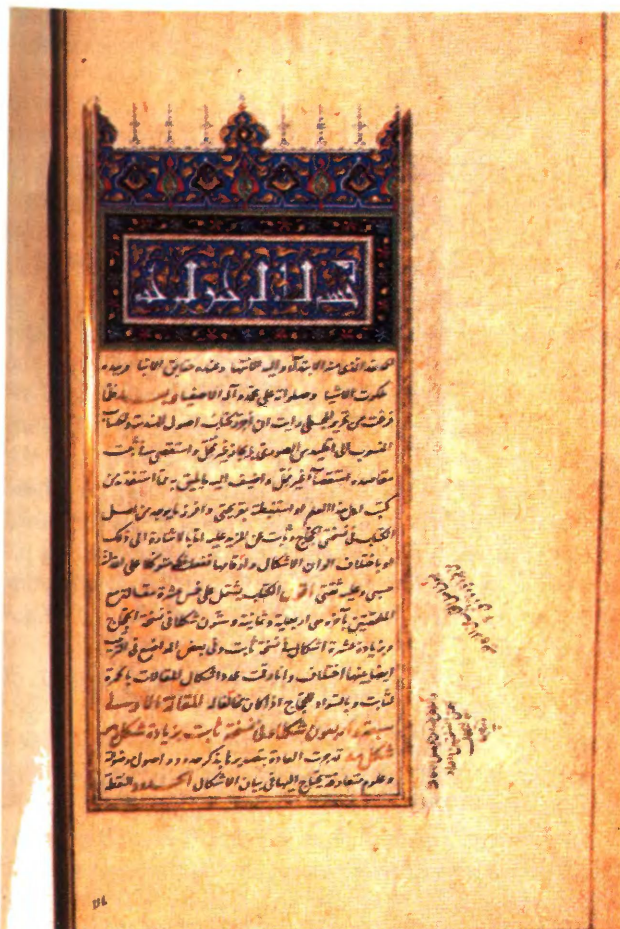 بسم الله الرحمن الرحيم
الحمد لله الذي منه الابتداء واليه الانتها وعنده حقايق الانبا وبيده
ملكوت الاشيا وصلواته على محمد وآله الاصفيا وبعد فلما
فرغت من تحرير المجسطي رايت ان احرر كتاب اصول الهندسة والحساب
المنسوب الى اقليدس الصوري بايجاز غير مخل واستقصي
مقاصده استقصاء غير ممل واضيف اليه ما يليق به مما استفدته من
كتب اهل هذا العلم او استنبطته بقريحتي وافرز ما يوجد من اصل
الكتاب في نسختي الحجاج وثابت عن المزيد عليه اما بالاشارة الى ذلك
او باختلاف الوان الاشكال وارقامها ففعلت متوكلا على الله انه
حسبي وعليه ثقتي اقول الكتاب يشتمل على خمس عشرة مقالة مع
الملحقتين بآخره وهي اربعماية وثمانية وستون شكلا في نسخة الحجاج
وبزيادة عشرة اشكال في نسخة ثابت وفي بعض المواضع في الترتيب
ايضا بينهما اختلاف وانا رقمت عدد اشكال المقالات بالحمرة
لثابت وبالسواد للحجاج اذا كان مخالفا له المقالة الاولى
سبعة واربعون شكلا وفي نسخة ثابت بزيادة شكل هو
شكل مه قد جرت العادة بتصدير ما بذكر حدود واصول موضوعة
وعلوم متعارفة يحتاج اليها في بيان الاشكال الحدود النقطة